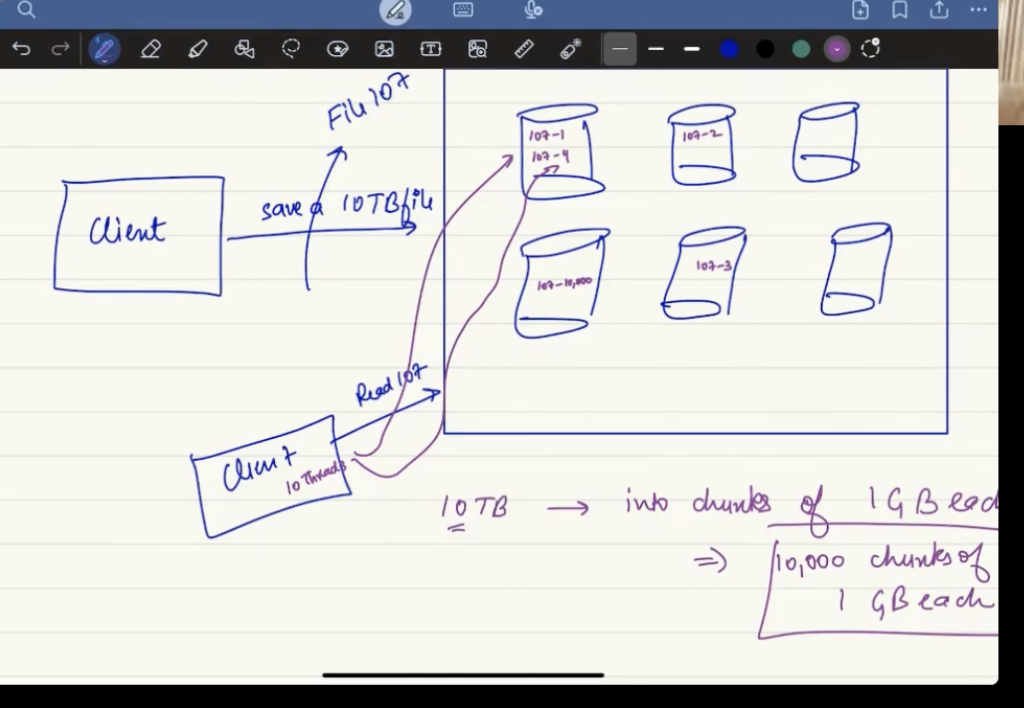 File 107
Client
save a 10TB file
107-1
107-4
107-2
107-10,000
107-3
Read 107
Client
10 Threads
10 TB → into chunks of 1 GB eac
⇒ 10,000 chunks of
1 GB each